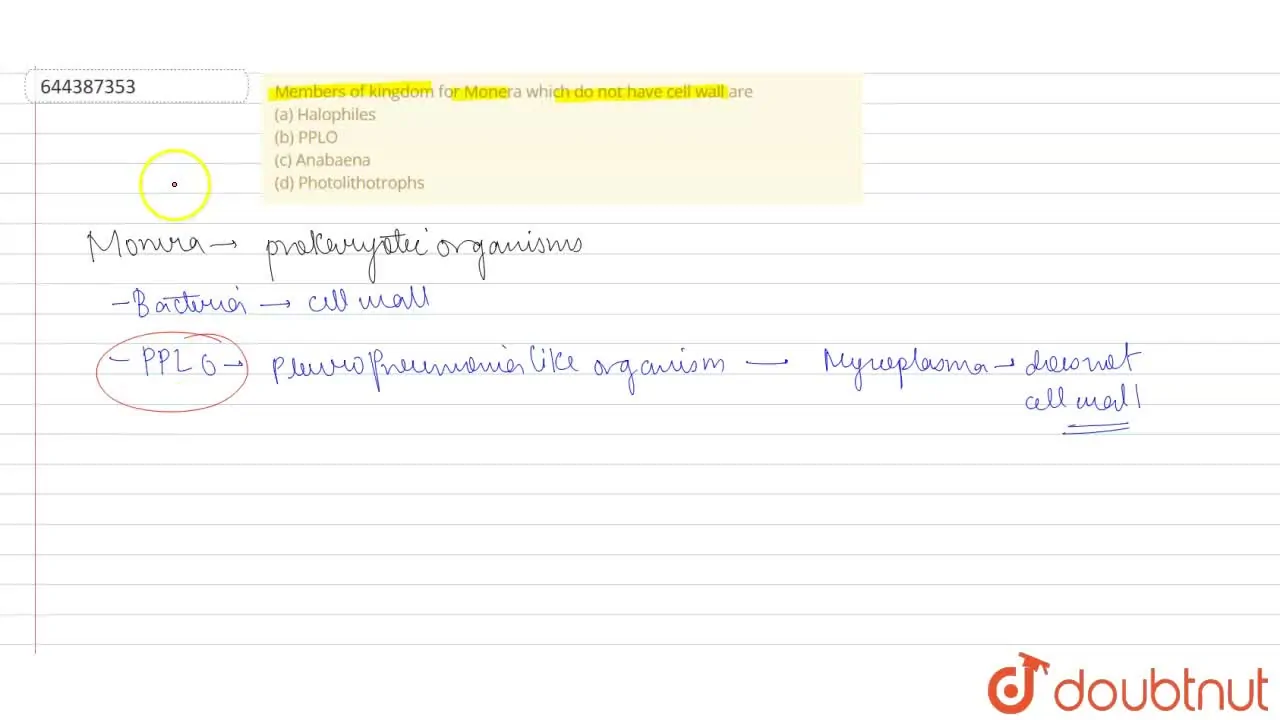 644387353
Members of kingdom for Monera which do not have cell wall are
(a) Halophiles
(b) PPLO
(c) Anabaena
(d) Photolithotrophs
Monera → prokaryotic organisms
- Bacteria → cell wall
- PPLO → Pleuro Pneumonia like organism — Mycoplasma → does not
cell wall
doubtnut